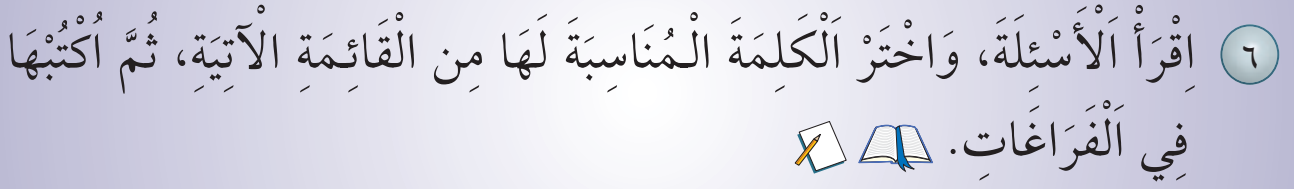 ٦ اِقْرَأْ اَلْأَسْئِلَةَ، وَاخْتَرْ اَلْكَلِمَةَ الْمُنَاسِبَةَ لَهَا مِن الْقَائِمَةِ الْآتِيَةِ، ثُمَّ اُكْتُبْهَا
فِي اَلْفَرَاغَاتِ.